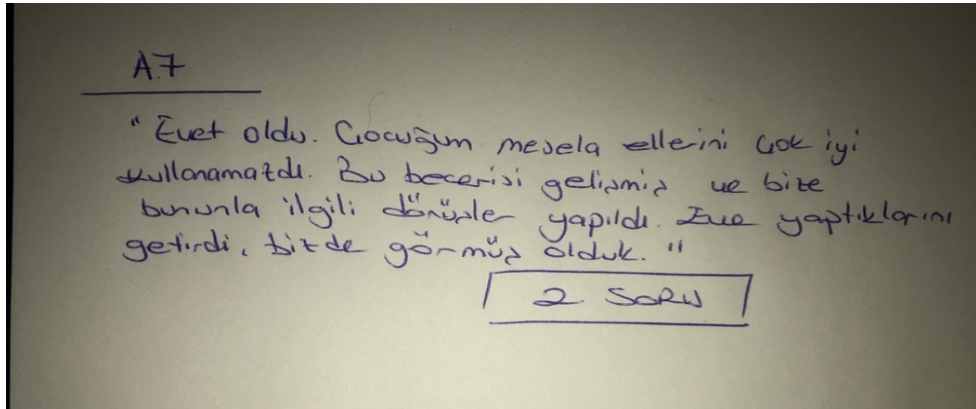 A7
"Evet oldu. Çocuğum mesela ellerini çok iyi
kullanamazdı. Bu becerisi gelişmiş ve bize
bununla ilgili dönüşler yapıldı. Eve yaptıklarını
getirdi, bizde görmüş olduk."
2. SORU